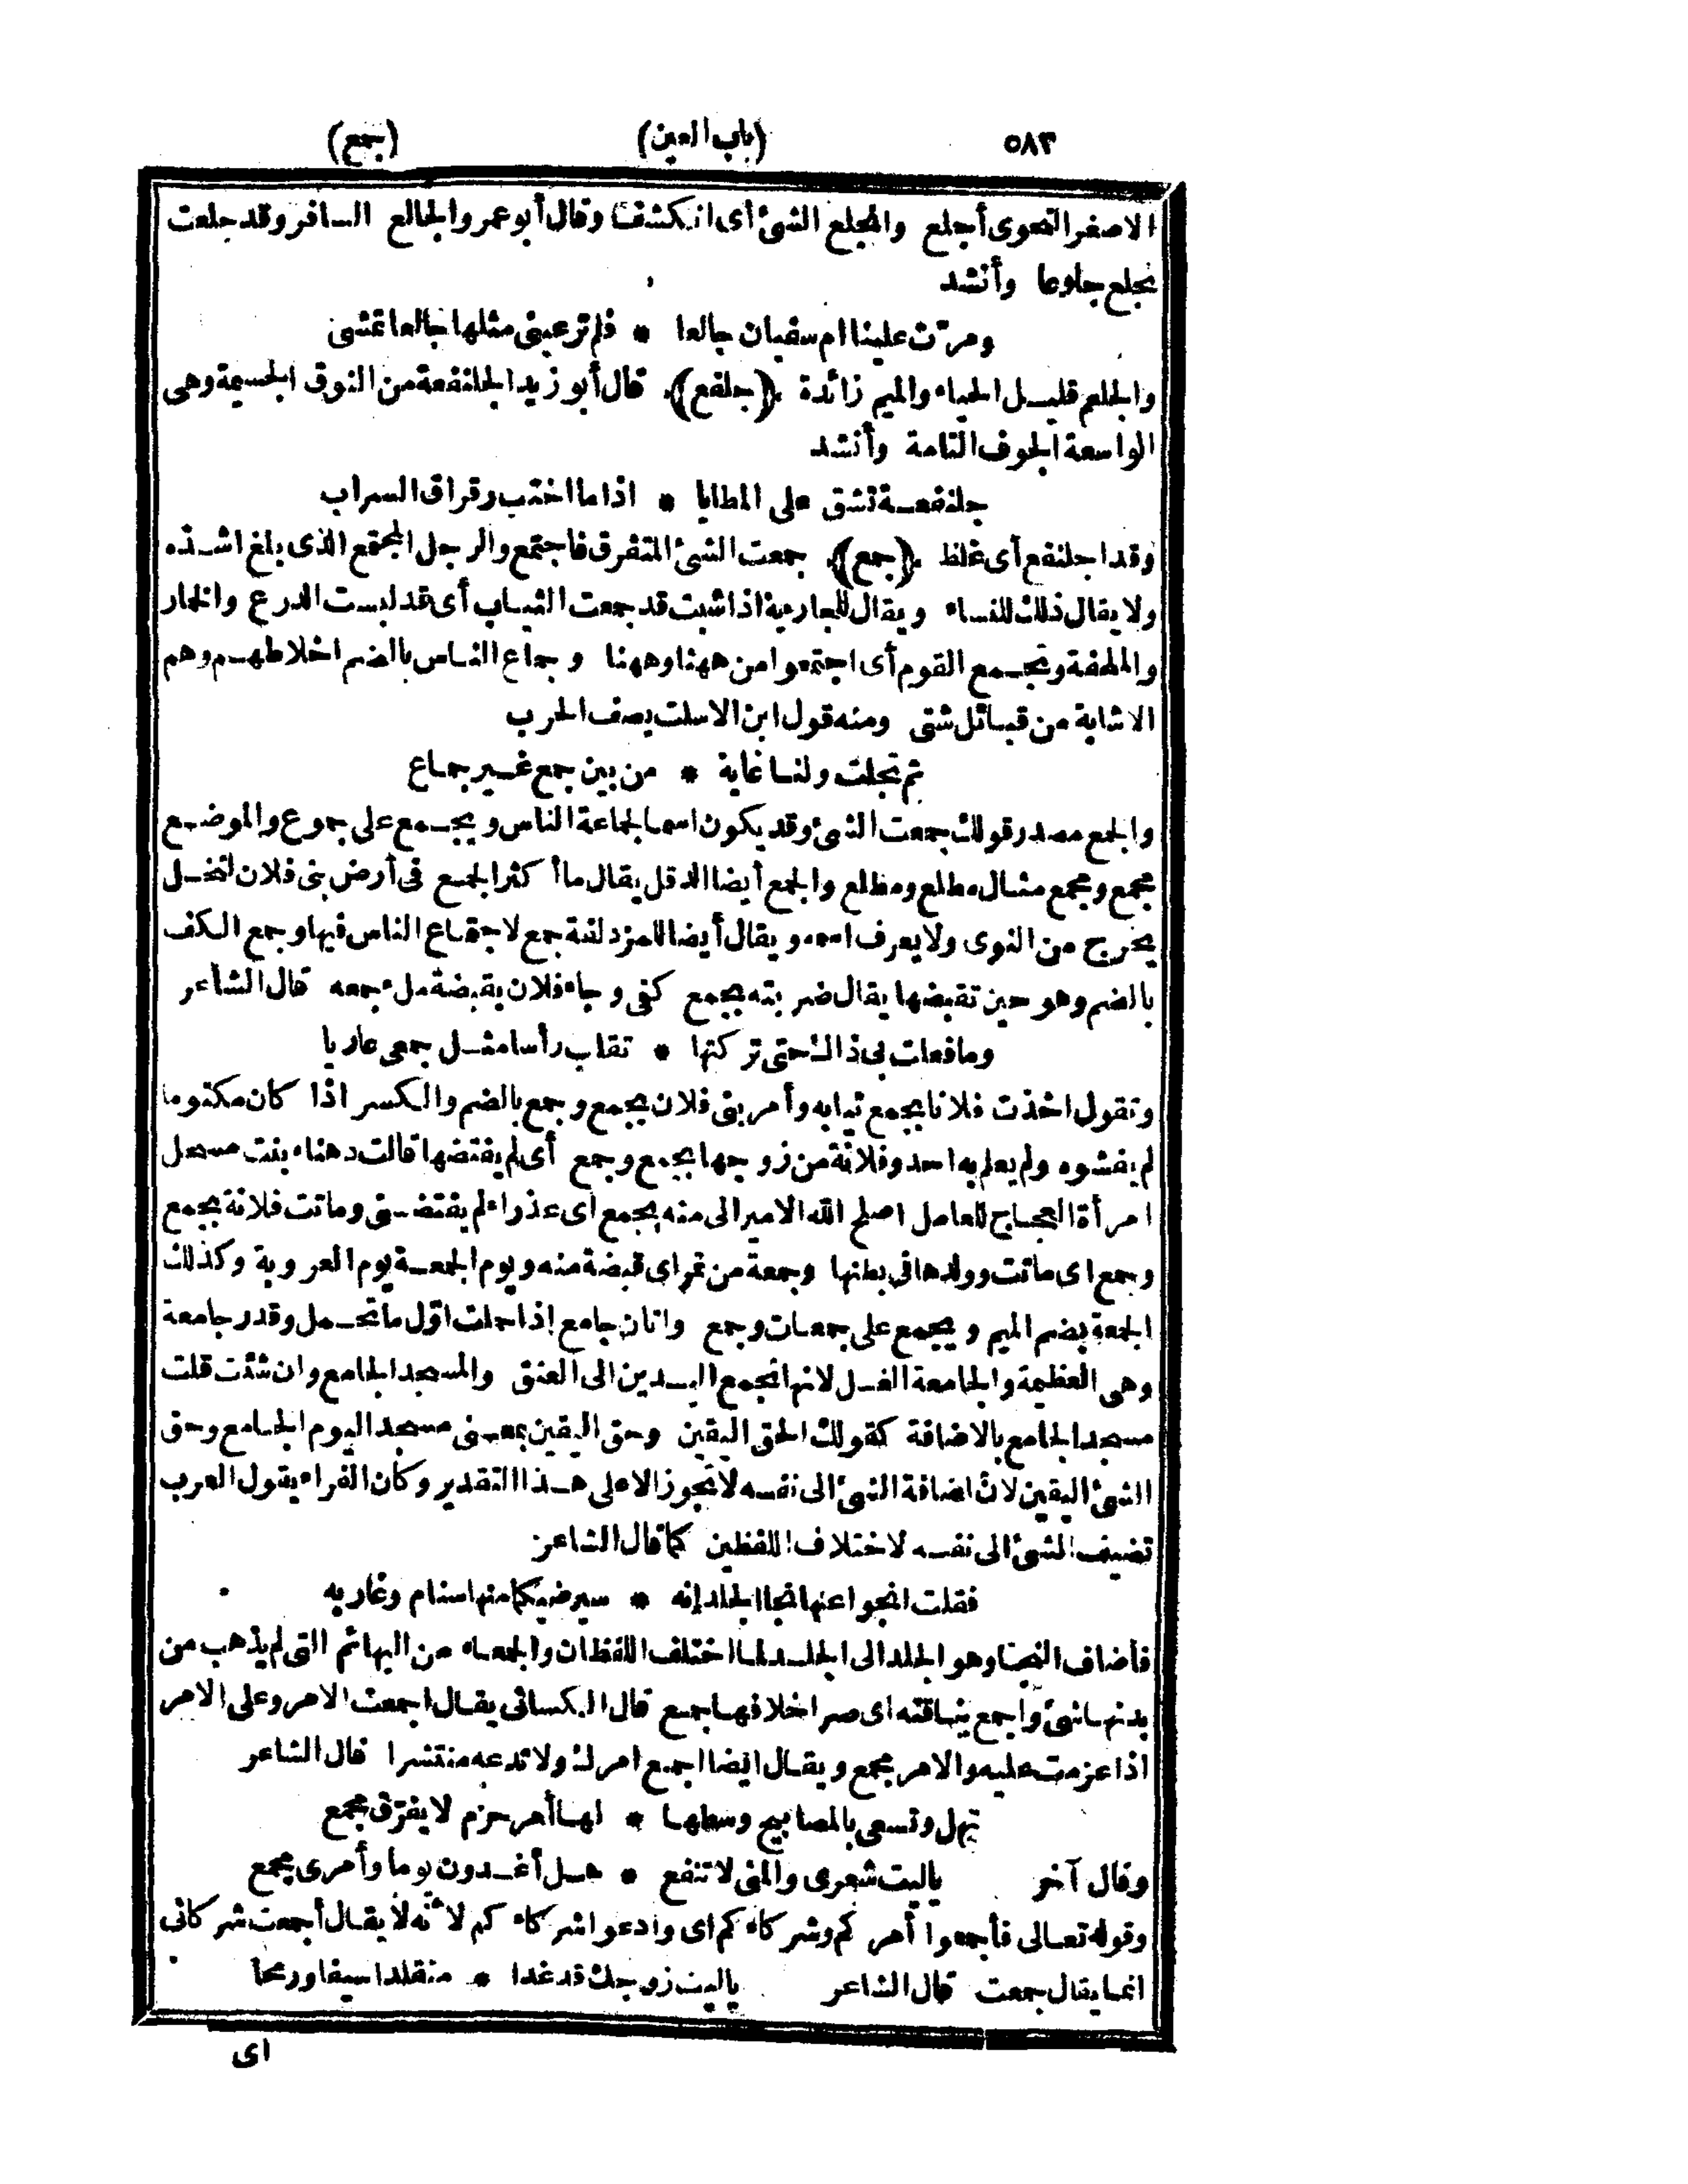 ٥٨٣ (باب العين) (جمع)
الاصغر النحوى أجلع وانجلع الشئ أى انكشف وقال أبو عمرو الجالع السافر وقد جلعت
تجلع جلوعا وأنشد
ومرّت علينا ام سفيان جالعا * فلم تر عينى مثلها جالعا تمشى
والجلعم قليل الحياء والميم زائدة (جلفع) قال أبو زيد الجلنفعة من النوق الجسيمة وهى
الواسعة الجوف التامة وأنشد
جلنفعة تشق على المطايا * اذا ما اختب رقراق السراب
وقد اجلنفع أى غلظ (جمع) جمعت الشئ المتفرق فاجتمع والرجل المجتمع الذى بلغ اشده
ولا يقال ذلك للنساء ويقال للجارية اذا شبت قد جمعت الثياب أى قد لبست الدرع والخمار
والملحفة وتجمع القوم أى اجتمعوا من ههنا وههنا وجماع الناس بالضم اخلاطهم وهم
الاشابة من قبائل شتى ومنه قول ابن الاسلت يصف الحرب
ثم تجلت ولنا غاية * من بين جمع غير جماع
والجمع مصدر قولك جمعت الشئ وقد يكون اسما لجماعة الناس ويجمع على جموع والموضع
مجمع ومجمع مثال مطلع ومطلع والجمع أيضا الدقل يقال ما أكثر الجمع فى أرض بنى فلان لنخل
يخرج من النوى ولا يعرف اسمه ويقال أيضا للمزدلفة جمع لاجتماع الناس فيها وجمع الكف
بالضم وهو حين تقبضها يقال ضربته بجمع كفى وجاء فلان بقبضة ملء جمعه قال الشاعر
وما فعلت بى ذاك حتى تركتها * تقلب رأسا مثل جمعى عاريا
وتقول اخذت فلانا بجمع ثيابه وأمر بنى فلان بجمع وجمع بالضم والكسر اذا كان مكتوما
لم يفشوه ولم يعلم به احد وفلانة من زوجها بجمع وجمع أى لم يفتضها قالت دهناء بنت مسحل
امرأة العجاج للعامل اصلح الله الامير انى منه بجمع اى عذراء لم يفتضنى وماتت فلانة بجمع
وجمع اى ماتت وولدها فى بطنها وجمعة من تمر اى قبضة منه ويوم الجمعة يوم العروبة وكذلك
الجمعة بضم الميم ويجمع على جمعات وجمع واتان جامع إذا حملت اوّل ما تحمل وقدر جامعة
وهى العظيمة والجامعة الغل لانها تجمع اليدين الى العنق والمسجد الجامع وان شئت قلت
مسجد الجامع بالاضافة كقولك الحق اليقين وحق اليقين بمعنى مسجد اليوم الجامع وحق
الشئ اليقين لان اضافة الشئ الى نفسه لا تجوز الا على هذا التقدير وكان الفراء يقول العرب
تضيف الشئ الى نفسه لاختلاف اللفظين كما قال الشاعر
فقلت انجوا عنها نجا الجلد إنه * سيرضيكما منها سنام وغاربه
فأضاف النجا وهو الجلد الى الجلد لما اختلف اللفظان والجمعاء من البهائم التى لم يذهب من
بدنها شئ واجمع بناقته اى صر اخلافها جمع قال الكسائى يقال اجمعت الامر وعلى الامر
اذا عزمت عليه والامر مجمع ويقال ايضا اجمع امرك ولا تدعه منتشرا قال الشاعر
تهل وتسعى بالمصابيح وسطها * لها أمر حزم لا يفرّق مجمع
وقال آخر ياليت شعرى والمنى لا تنفع * هل أغدون يوما وأمرى مجمع
وقوله تعالى فأجمعوا أمركم وشركاءكم اى وادعوا شركاءكم لانّه لا يقال أجمعت شركائى
انما يقال جمعت قال الشاعر ياليت زوجك قد غدا * متقلدا سيفا ورمحا
اى